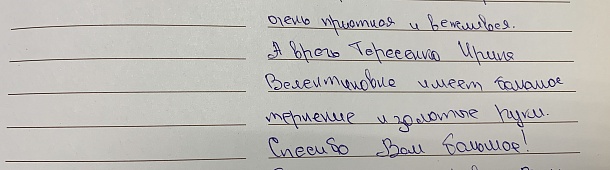 очень приятная и вежливая.
А врач Тарасенко Ирина
Валентиновна имеет большое
терпение и золотые руки.
Спасибо Вам большое!